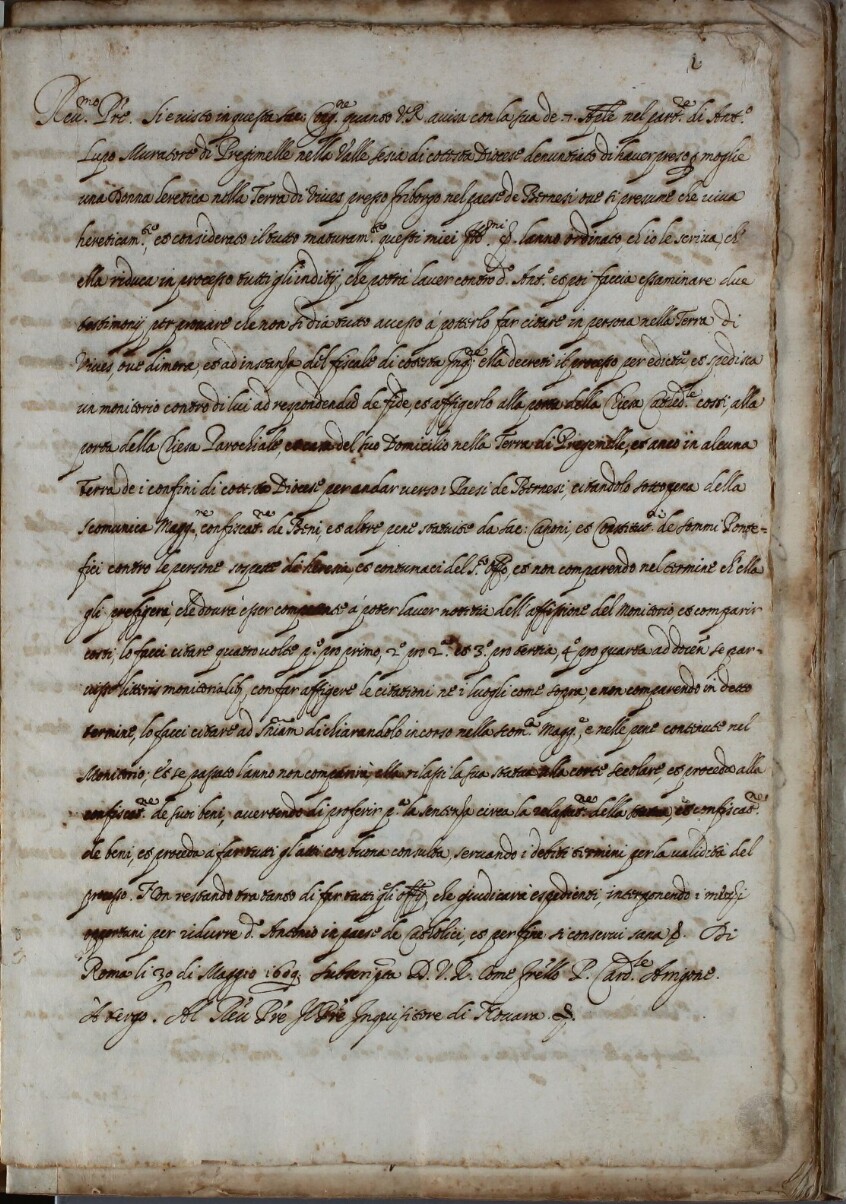 1
Reu.mo Pre. Si è visto in questa Sac: Cong.ne quanto V.R. auisa con la sua de 7. Aple nel part.re di Ant.o
Lupo Muratore di Pregimelle nella Valle Sesia di cotesta Diocese denuntiato di hauer preso p moglie
una Donna heretica nella Terra di Viues presso Friborgo nel paese de Bernesi oue si presume che viua
hereticam.te, et considerato il tutto maturam.te questi miei Ill.mi SS. hanno ordinato ch'io le scriua, ch'
ella riduca in processo tutti gl'inditij, che potrà hauer contro d.o Ant.o et poi faccia essaminare due
testimonij per prouare che non si dia tutto accesso à poterlo far citare in persona nella Terra di
Viues, oue dimora, et ad instanza del fiscale di cotesta Inq.ne ella decreti il processo per edictu et spedisca
un monitorio contro di lui ad respondendu de fide, et affigerlo alla porta della Chiesa Catted.le cossi, alla
porta della Chiesa Parochiale, et del suo Domicilio nella Terra di Pregemelle, et anco in alcuna
Terra de i confini di cotesta Diocese per andar uerso i Paesi de Bernesi, citandolo sotto pena della
scomunica Magg.re confiscat.ne de Beni, et altre pene statuite da Sac: Canoni, et Constitut.ni de sommi Ponte=
fici contro le persone sospette di heresia, et contumaci del S.to Off.o, et non comparendo nel termine ch'ella
gli prefigerà, che dourà esser competente à poter hauer notitia dell'affissione del Monitorio, et comparir
costì, lo facci citare quatro uolte p.o pro primo, 2.o pro 2.o et 3.o pro tertia, 4.o pro quarta ad docen se par=
uisse litteris monitorialib, con far affigere le citationi ne i luoghi come sopra, e non comparendo in detto
termine, lo facci citare ad sniam dichiarandolo incorso nella scom.ca Magg.re, e nelle pene contenute nel
Monitorio; et se passato l'anno non comparirà, ella rilassi la sua statua alla corte secolare, et proceda alla
confiscat.ne de suoi beni, auertendo di proferir p.a la sentenza circa la relassat.ne della statua, et confiscat.ne
de beni, et proceda à far tutti gl'atti con buona consulta, seruando i debiti termini per la validità del
processo. Non restando tra tanto di far tutti gli offitij che giudicarà espedienti, interponendo i mezzi
opportuni per ridurre d.o Antonio in paese de Catholici, et per fine si conserui sana &. Di
Roma li 30 di Maggio 1609. Subscripta D. V. R. Come frello P. Card.le Arigone.
A tergo. Al Reu Pre Il Pre Inquisitore di Nouara. &.